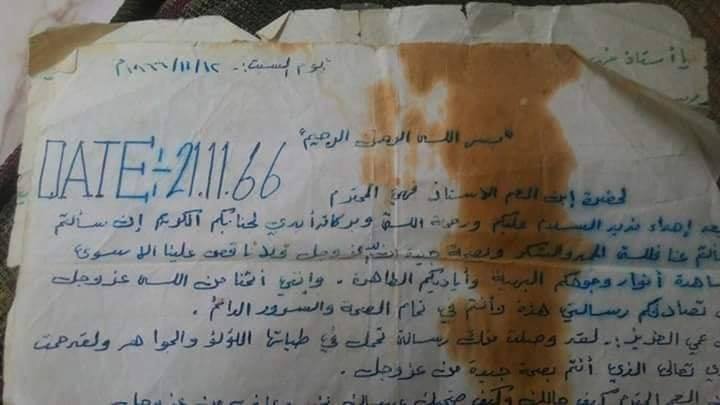 يوم السبت:. ١٩٦٦/١١/١٢م
يا أستاذ
"بسم الله الرحمن الرحيم"
DATE:-21.11.66
لحضرة إبن العم الاستاذ فهمي المحترم
بعد إهداء مزيد السلام عليكم ورحمة الله وبركاته أبدي لجنابكم الكريم إن سألتم
عنا فلله الحمد والشكر وبصحة جيدة من عزوجل ولا ناقص علينا الا سوى
مشاهدة أنوار وجوهكم البهية وأياديكم الطاهرة. وإنني أتمنا من الله عزوجل
تصادفكم رسالتي هذه وأنتم في تمام الصحة والسرور الدائم.
عمي العزيز:. لقد وصلت منك رسالة تحمل في طياتها اللؤلؤ والجواهر ولقد حمدت
تعالى الذي أنتم بصحة جيدة من عزوجل.
العم كيف حالك وكيف صحتك